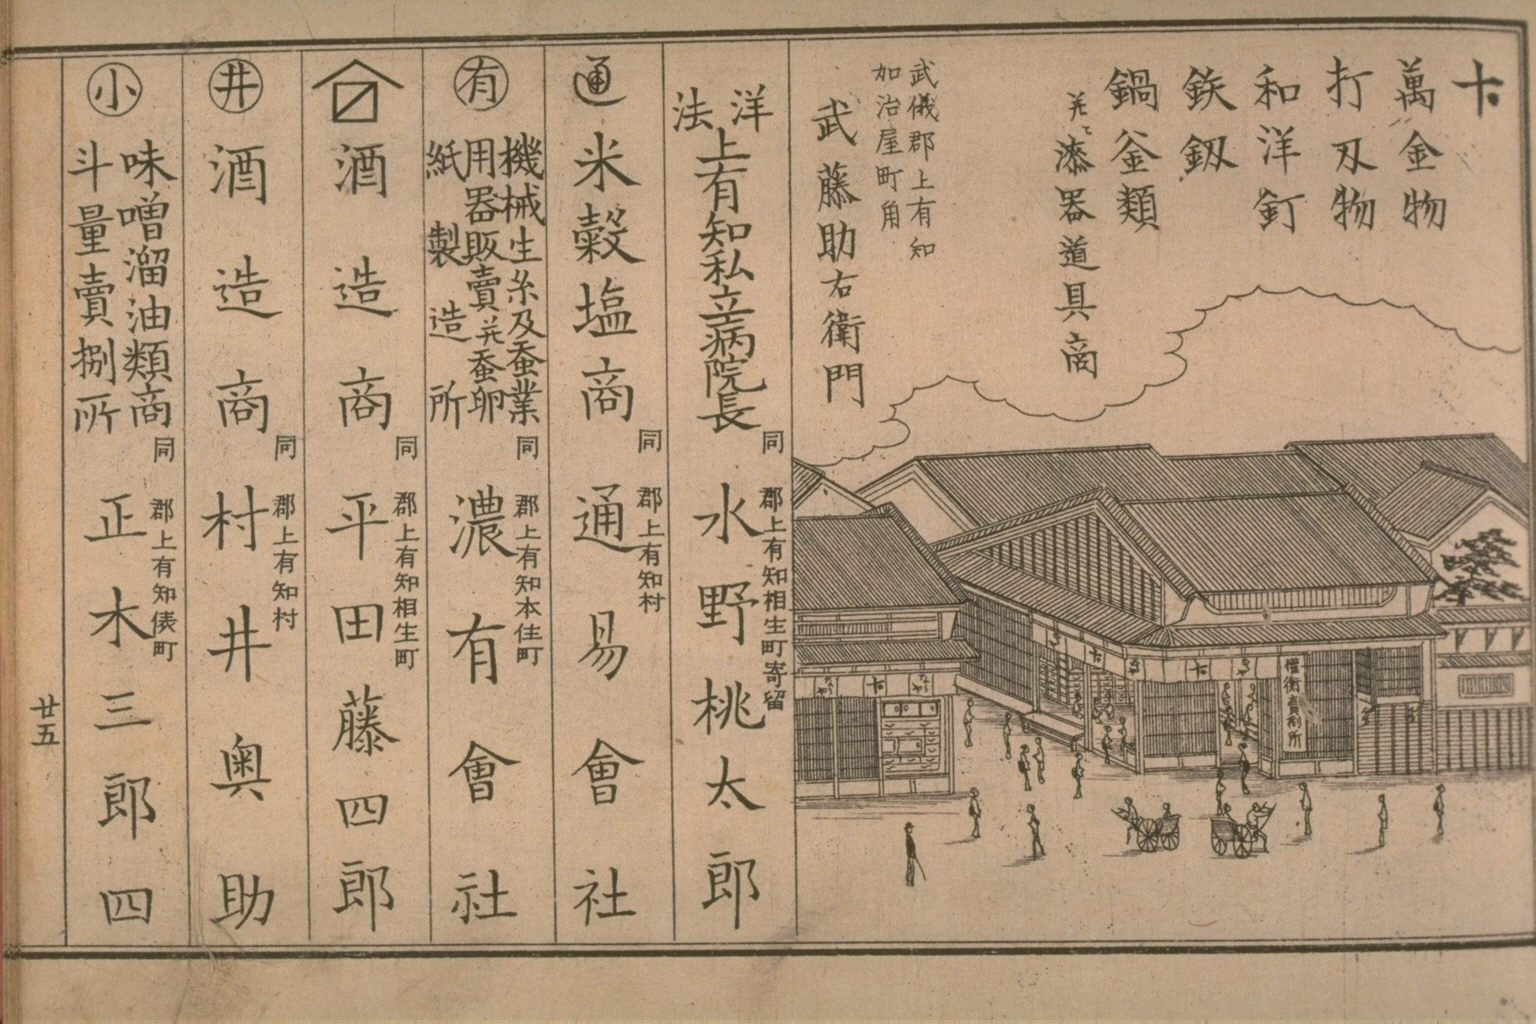 卜
萬金物
打刃物
和洋釘
鉄釼
鍋釜類
并ニ漆器道具商
武儀郡上有知
加治屋町角
武藤助右衛門
權衡賣捌所
洋法
上有知私立病院長
同郡上有知相生町寄留
水野桃太郎
通
米穀塩商
同郡上有知村
通易會社
有
機械生糸及蚕業
用器販賣并蚕卵
紙製造所
同郡上有知本住町
濃有會社
酒造商
同郡上有知相生町
平田藤四郎
井
酒造商
同郡上有知村
村井奥助
小
味噌溜油類商
斗量賣捌所
同郡上有知俵町
正木三郎四
廿五